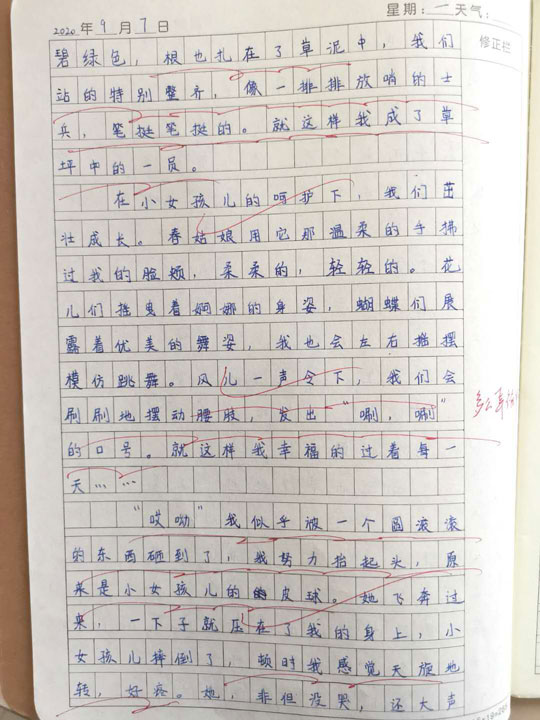 星期：一 天气：
2020年9月7日
修正栏
碧绿色，根也扎在了草泥中，我们
站的特别整齐，像一排排放哨的士
兵，笔挺笔挺的。就这样我成了草
坪中的一员。
在小女孩儿的呵护下，我们茁
壮成长。春姑娘用它那温柔的手拂
过我的脸颊，柔柔的，轻轻的。花
儿们摇曳着婀娜的身姿，蝴蝶们展
露着优美的舞姿，我也会左右摇摆
模仿跳舞。风儿一声令下，我们会
刷刷地摆动腰肢，发出“唰，唰”
的口号。就这样我幸福的过着每一
天……
“哎呦”我似乎被一个圆滚滚
的东西砸到了，我努力抬起头，原
来是小女孩儿的皮球。她飞奔过
来，一下子就压在了我的身上，小
女孩儿摔倒了，顿时我感觉天旋地
转，好疼。她，非但没哭，还大声